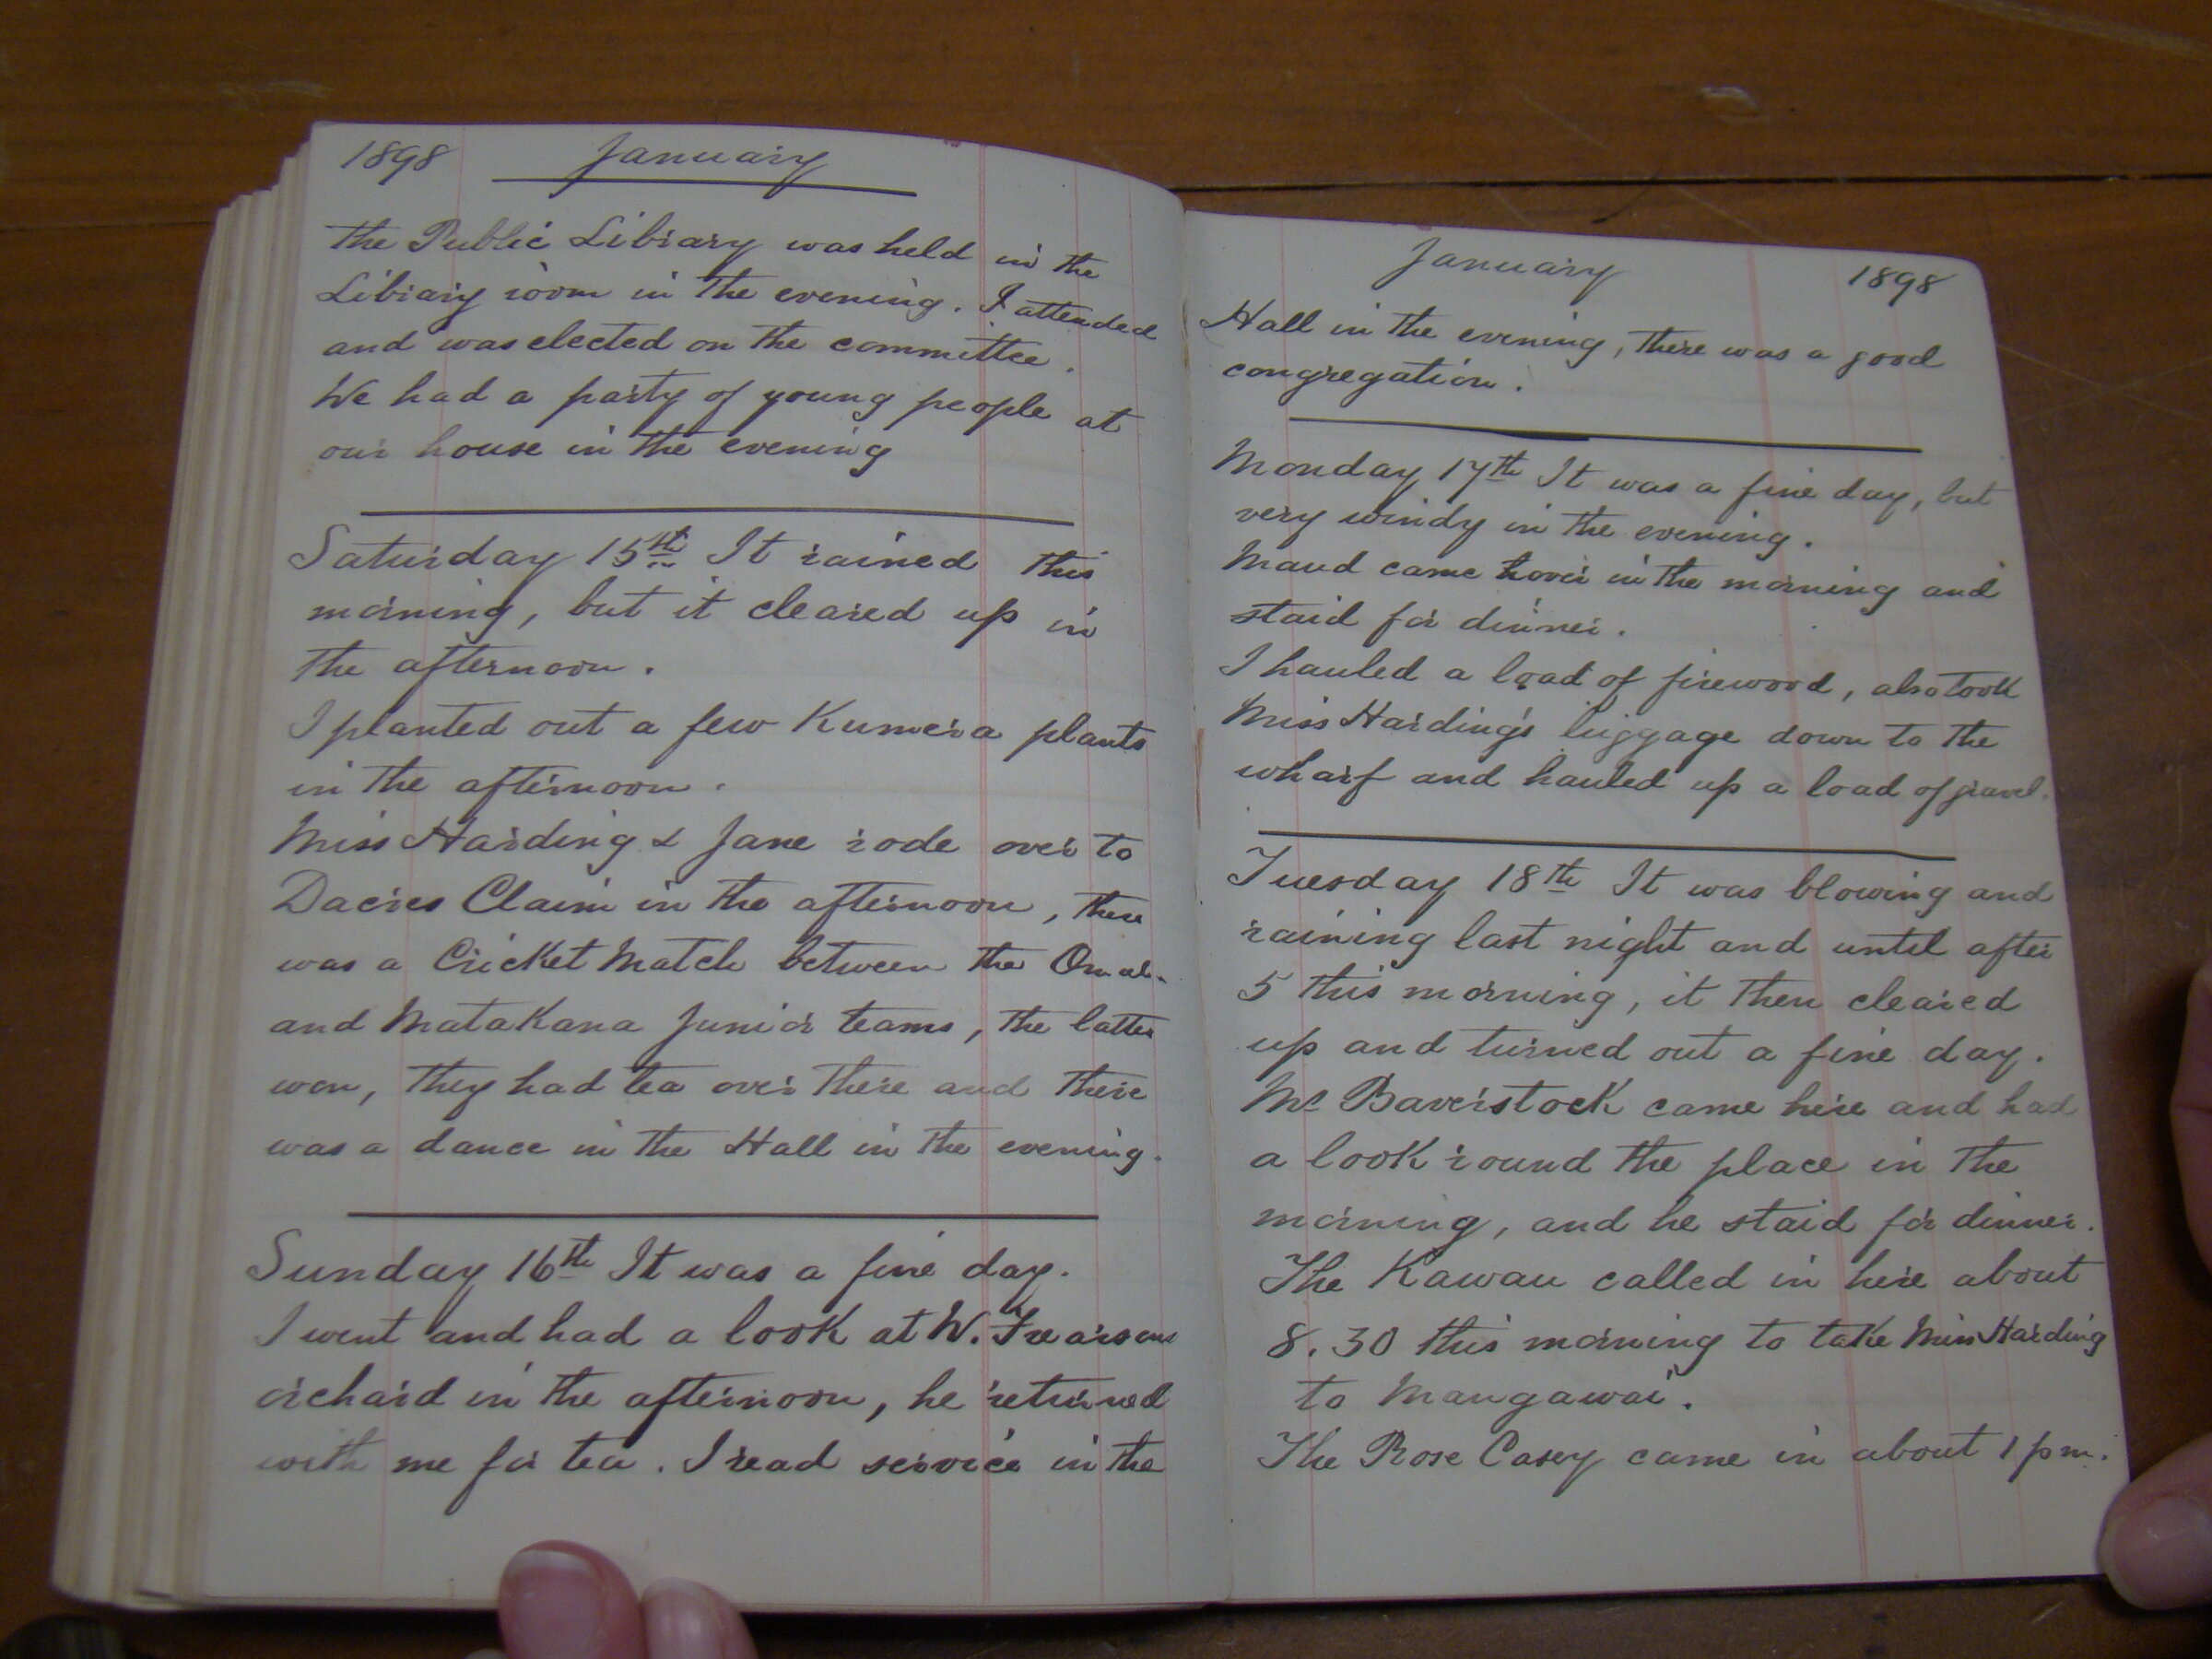 1898 January
the Public Library was held in the
Library room in the evening. I attended
and was elected on the committee.
We had a party of young people at
our house in the evening
Saturday 15th It rained this
morning, but it cleared up in
the afternoon.
I planted out a few Kumera plants
in the afternoon.
Miss Harding & Jane rode over to
Dacres Claim in the afternoon, there
was a Cricket Match between the Omaha
and Matakana Junior teams, the latter
won, they had tea over there and there
was a dance in the Hall in the evening.
Sunday 16th It was a fine day.
I went and had a look at W.
orchard in the afternoon, he returned
with me for tea. I read service in the
January 1898
Hall in the evening, there was a good
congregation.
Monday 17th It was a fine day, but
very windy in the evening.
Maud came over in the morning and
staid for dinner.
I hauled a load of firewood, also took
Miss Harding's luggage down to the
wharf and hauled up a load of gravel.
Tuesday 18th It was blowing and
raining last night and until after
5 this morning, it then cleared
up and turned out a fine day.
Mr Baverstock came here and had
a look round the place in the
morning, and he staid for dinner.
The Kawau called in here about
8.30 this morning to take Miss Harding
to Mangawai.
The Rose Casey came in about 1 pm.